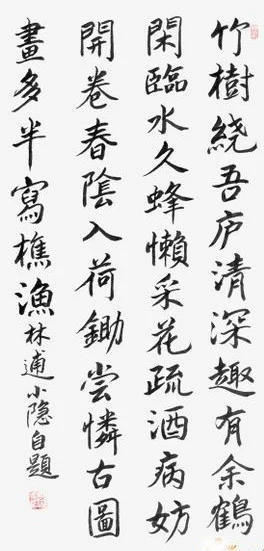 竹樹繞吾庐清深趣有余鶴
閑臨水久蜂懶采花疏酒病妨
開卷春陰入荷鋤尝憐古圖
畫多半寫樵漁林逋小隐自題